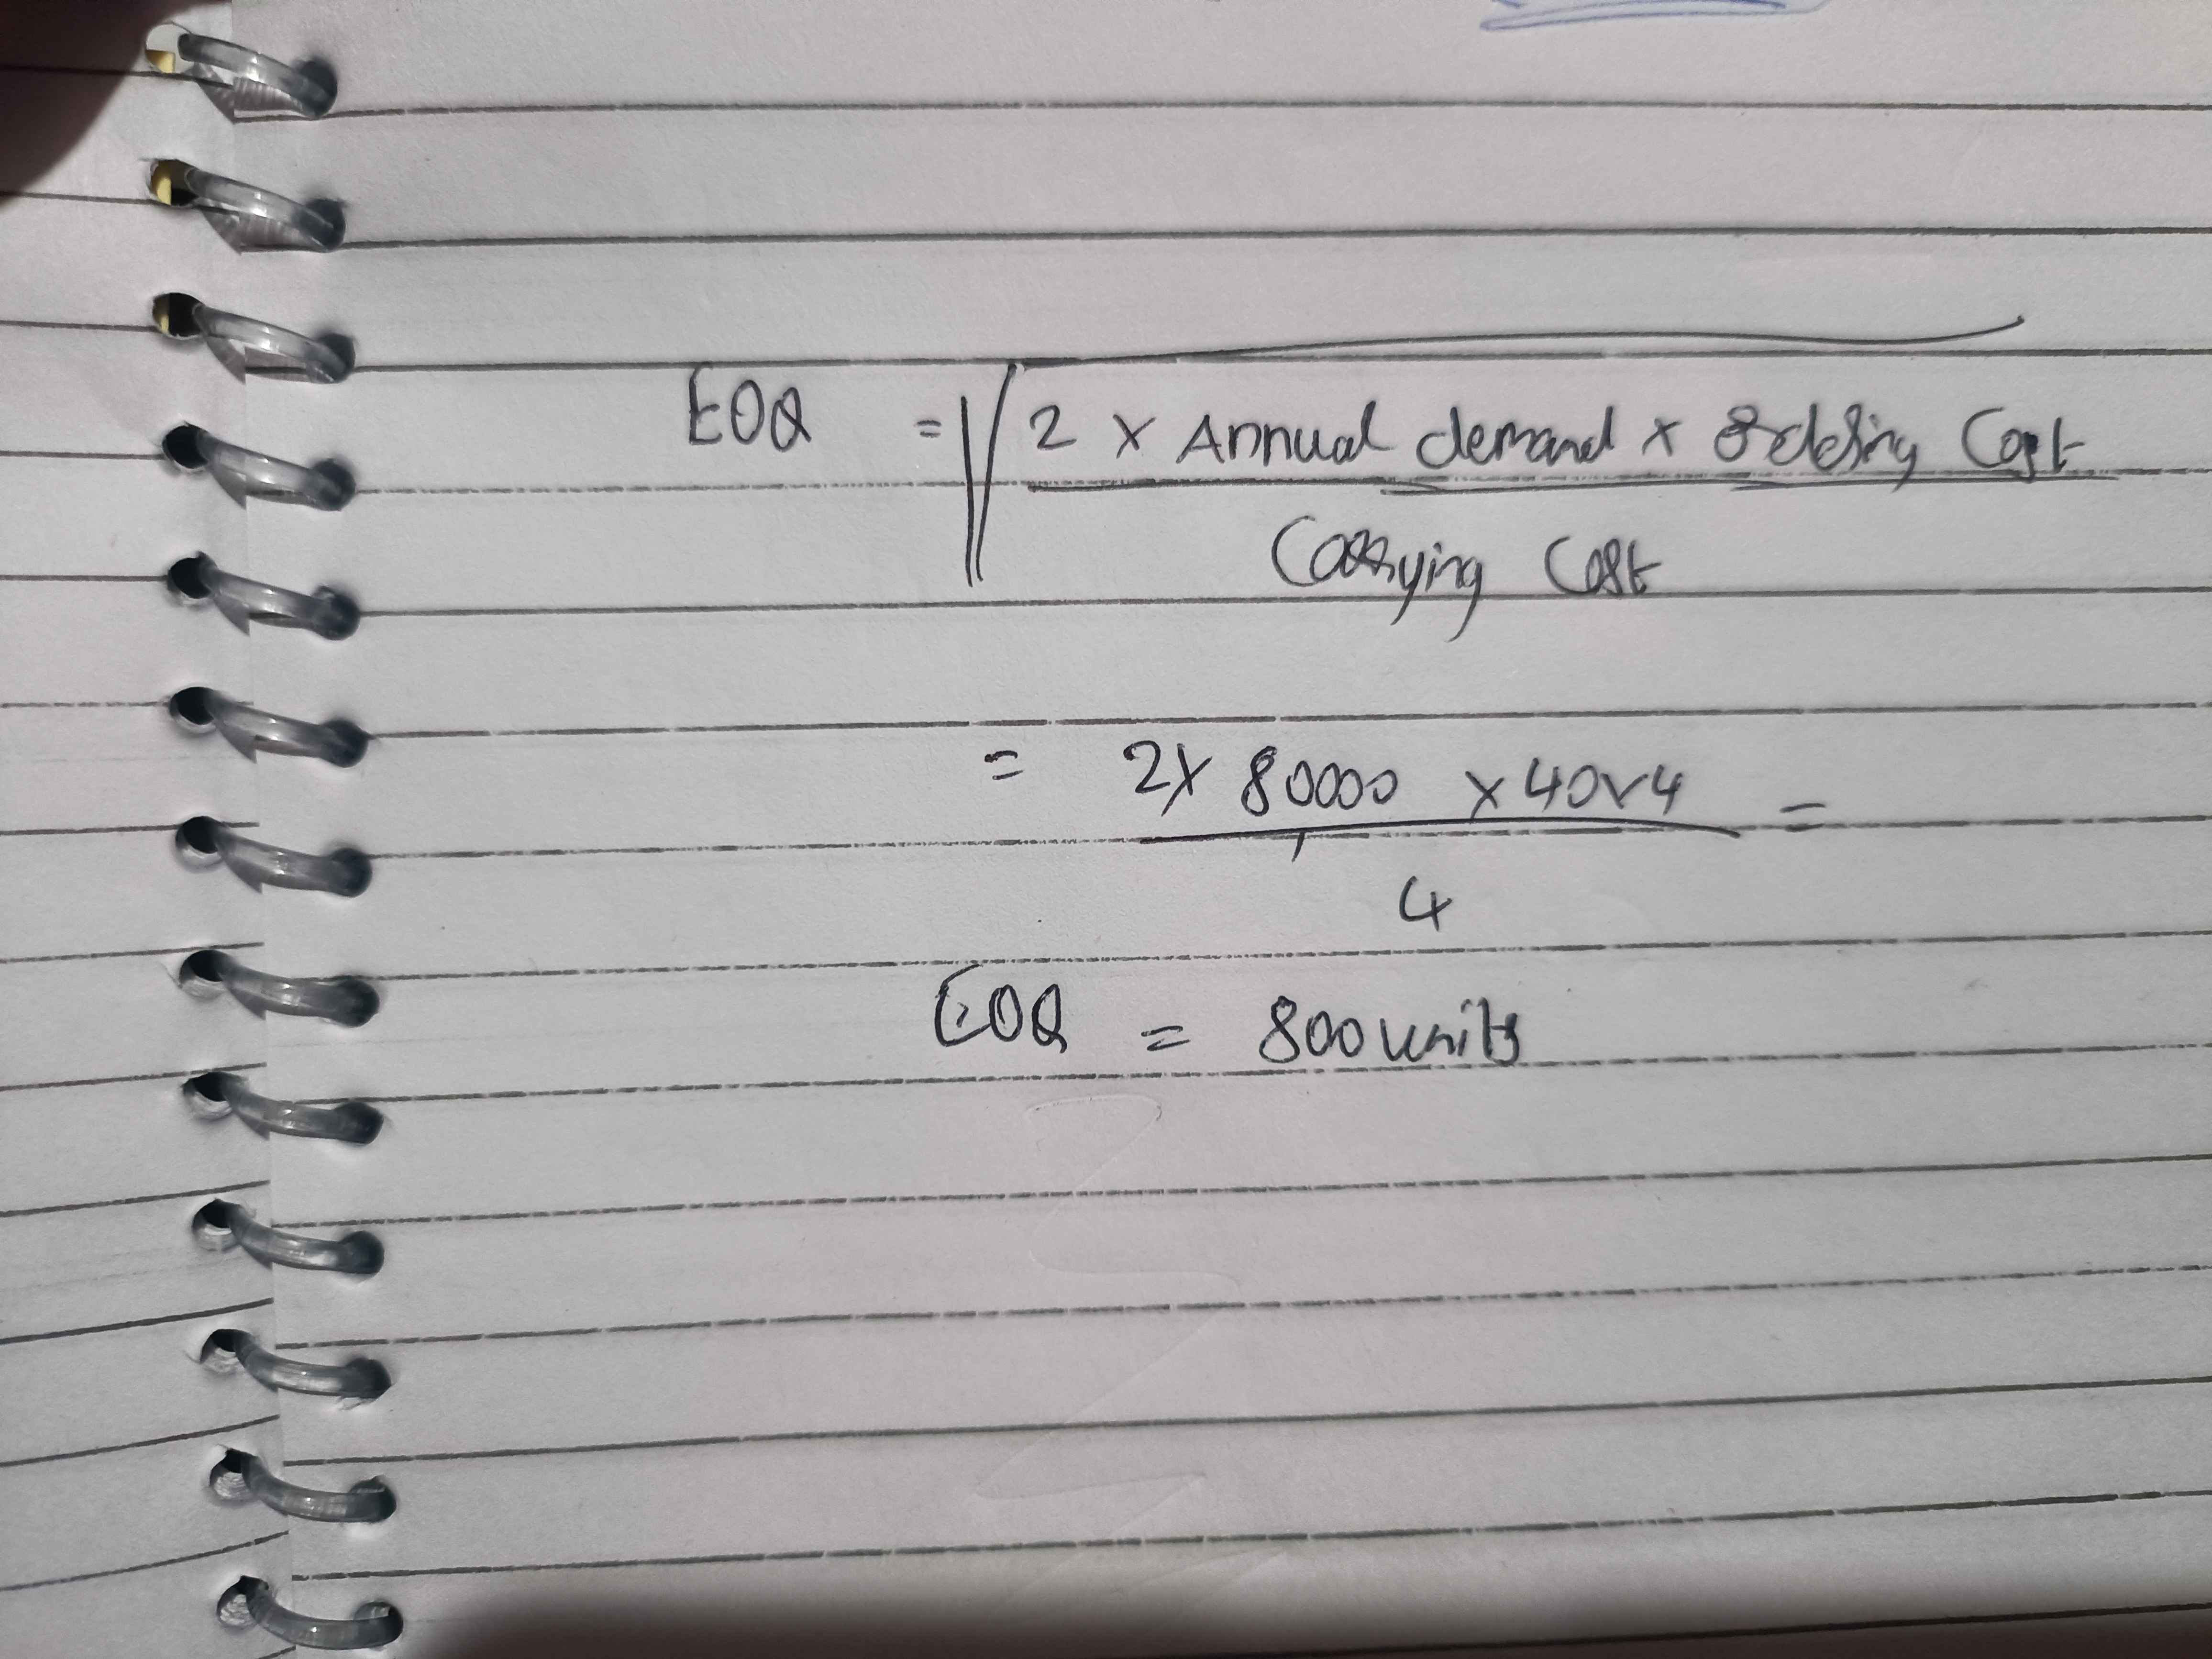 EOQ = √ 2 x Annual demand x Ordering Cost
Carrying Cost
= 2x 80000 x 40x4 =
4
EOQ = 800 units